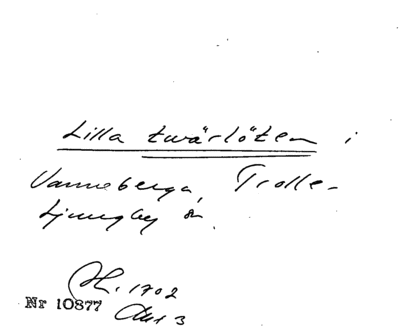 Lilla twärlöten i
Vanneberga, Trolle-
Ljungby sn.
H. 1702
Nr 10877
Akt 3